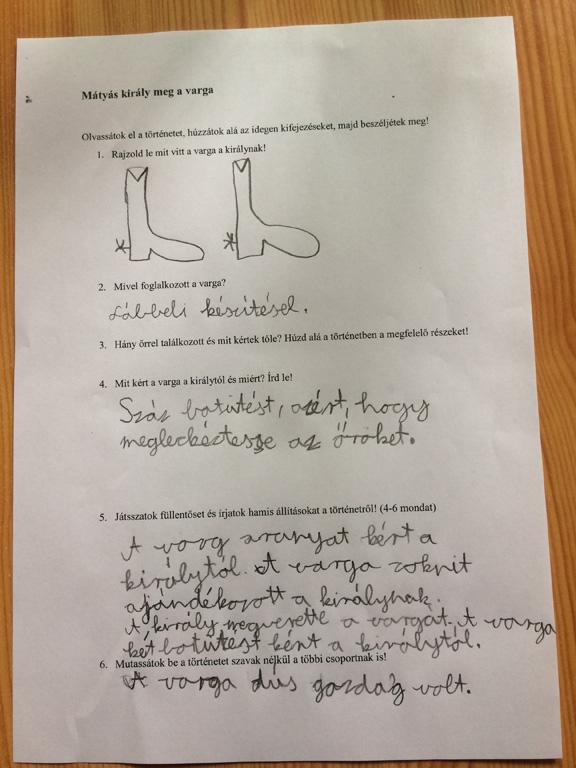 Mátyás király meg a varga
Olvassátok el a történetet, húzzátok alá az idegen kifejezéseket, majd beszéljétek meg!
1. Rajzold le mit vitt a varga a királynak!
2. Mivel foglalkozott a varga?
Lábbeli készítésel.
3. Hány őrrel találkozott és mit kértek tőle? Húzd alá a történetben a megfelelő részeket!
4. Mit kért a varga a királytól és miért? Írd le!
Száz botütést, azért, hogy
megleckéztesse az őröket.
5. Játsszatok füllentőset és írjatok hamis állításokat a történetről! (4-6 mondat)
A varg aranyat kért a
királytól. A varga zoknit
ajándékozott a királynak.
A király megverette a vargát. A varga
két botütést kért a királytól.
6. Mutassátok be a történetet szavak nélkül a többi csoportnak is!
A varga dús gazdag volt.